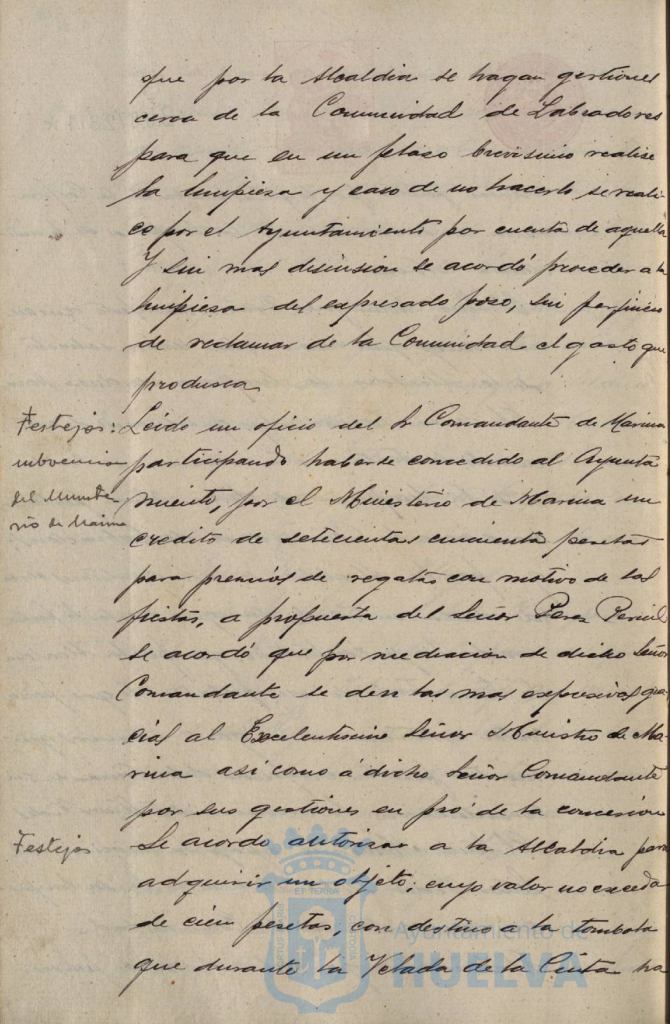 que por la Alcaldia se hagan gestiones
cerca de la Comunidad de Labradores
para que en un plazo brevisimo realise
la limpiesa y caso de no hacerlo se reali
ce por el Ayuntamiento por cuenta de aquella
Y sin mas discusion se acordó proceder a la
limpiesa del expresado poso, sin perjuicio
de reclamar de la Comunidad el gasto que
produsca
Festejos:
subvencion
del Ministe
rio de Marina
Leido un oficio del Sr Comandante de Marina
participando haberse concedido al Ayunta
miento, por el Ministerio de Marina un
credito de setecientas cincuenta pesetas
para premios de regatas con motivo de las
fiestas, a propuesta del Señor Perez
se acordó que por mediacion de dicho Señor
Comandante se den las mas expresivas gra
cias al Excelentisimo Señor Ministro de Ma
rina asi como á dicho Señor Comandante
por sus gestiones en pró de la concesion
Festejos
Se acordo autorizar a la Alcaldia para
adquirir un objeto; cuyo valor no exceda
de cien pesetas, con destino a la tombola
que durante la Velada de la Cinta ha
Ayuntamiento de
HUELVA